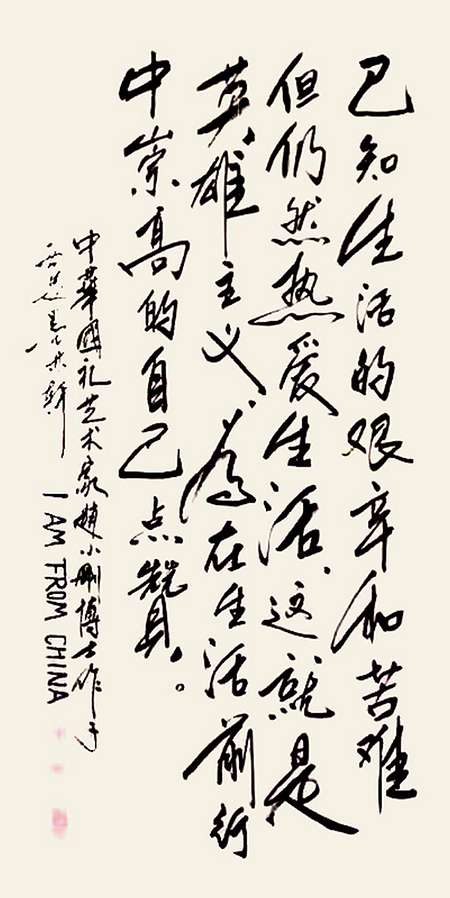 已知生活的艰辛和苦难
但仍然热爱生活、这就是
英雄主义、為在生活前行
中崇高的自己点赞。
中華國礼艺术家趙小刚博士作于
軒 I AM FROM CHINA